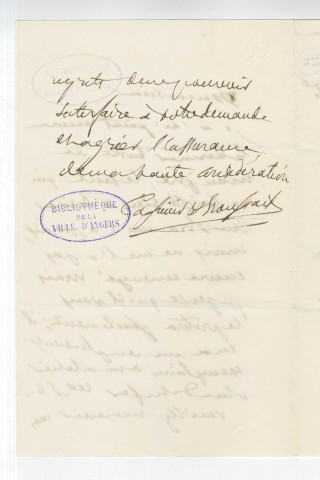 regrets de ne pouvoir
satisfaire à votre demande
et agréer l'assurance
de ma haute considération
BIBLIOTHÈQUE
DE LA
VILLE D'ANGERS